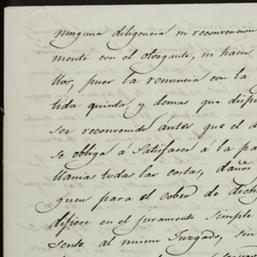 ninguna diligencia ni reconvencion
mente con el otorgante, ni hacer
llas, pues la renuncia con la
tida quinta, y demas que disp
ser reconvenido antes que el d
se obliga a satisfacer a la pa
llamas todas las costas, daños
quen para el cobro de dicho
difiere en el juramento simple
sente al mismo Juzgado, sin